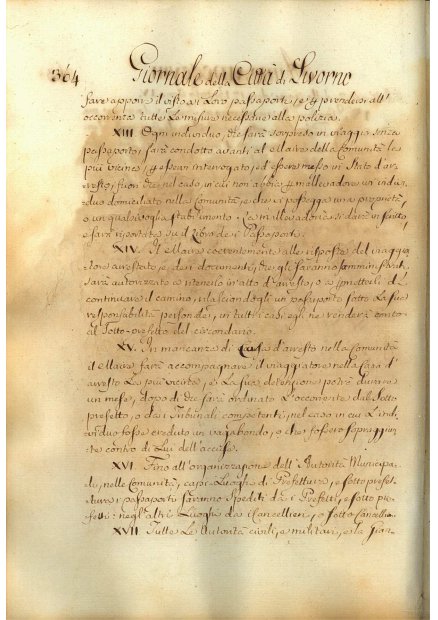 364 Giornale della Città di Livorno
fare apporre il visto ai Loro passaporti, e di prendere all'
occorrenza tutte Le misure necessarie alla polizia.
XIII Ogni individuo, che sarà sorpreso in viaggio senza
passaporto, sarà condotto avanti al Maire della Comunità la
più vicina, p essere interrogato, ed essere messo in stato d'ar
resto, fuori che nel caso in cui non abbia p mallevadore un indivi
duo domiciliato nella Comunità, e che possegga una proprietà,
o un qualsivoglia stabilimento. La mallevadoria si darà in scritto,
e sarà riportata su il Libro de i Passaporti.
XIV. Il Maire coerentemente alle risposte del viaggia
tore arrestato, e dai documenti, che gli saranno somministrati,
sarà autorizzato a tenerlo in stato d'arresto, o a permetterli di
continuare il camino, rilasciandogli un passaporto sotto La sua
responsabilità personale; in tutti i casi egli ne renderà conto
al Sotto-prefetto del circondario.
XV. In mancanza di Casa d'arresto nella comunità
il Maire farà accompagnare il viaggiatore nella Casa d'
arresto La più vicina, e La sua detenzione potrà durare
un mese, dopo di che sarà ordinato L'occorrente dal Sotto
prefetto, o da i Tribunali competenti, nel caso in cui L'indi
viduo fosse creduto un vagabondo, o che fossero sopraggiun
te contro di Lui dell'accuse.
XVI. Fino all'organizzazione dell'Autorità Municipa
li, nelle Comunità, capi-Luoghi di Prefettura, e sotto prefet
tura i passaporti saranno spediti da i Prefetti, e sotto pre
fetti: negl'altri Luoghi da i Cancellieri, o sotto Cancellieri.
XVII Tutte Le Autorità civili, e militari, e la Gian